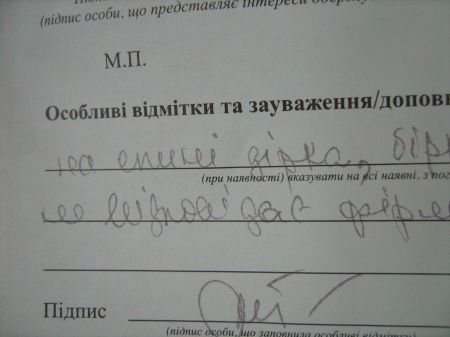 (підпис особи, що представляє інтереси
М.П.
Особливі відмітки та зауваження/допов
на спині дірка, бір
(при наявності) вказувати на всі наявні, з пог
не відповідає фірм
Підпис
(підпис особи, що заповнила особливі відмітки)